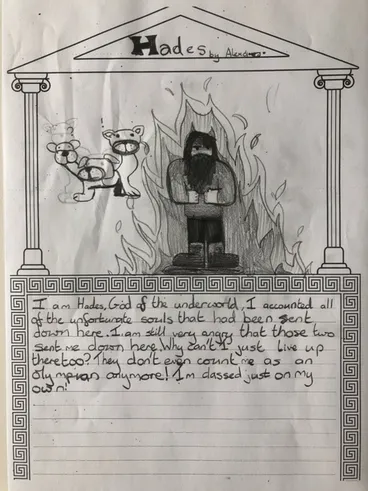 Hades by
I am Hades, God of the underworld. I accounted all
of the unfortunate souls that had been sent
down here. I am still very angry that those two
sent me down here. Why can't I just live up
there too? They don't even count me as an
Olympian anymore! I'm classed just on my
own!